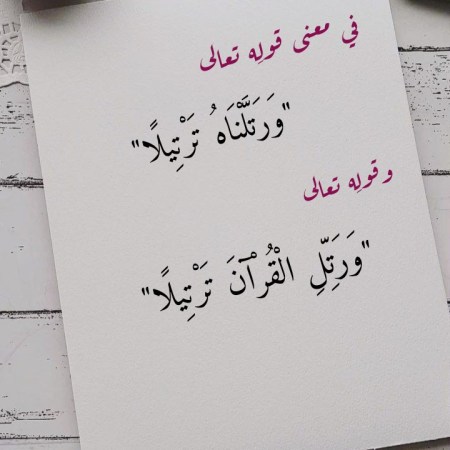 في معنى قولِه تعالى
"وَرَتَلَّنْاَهُ تَرْتِيلًا"
وقولِه تعالى
"وَرَتِلِّ الْقُرْآنَ تَرْتِيلًا"